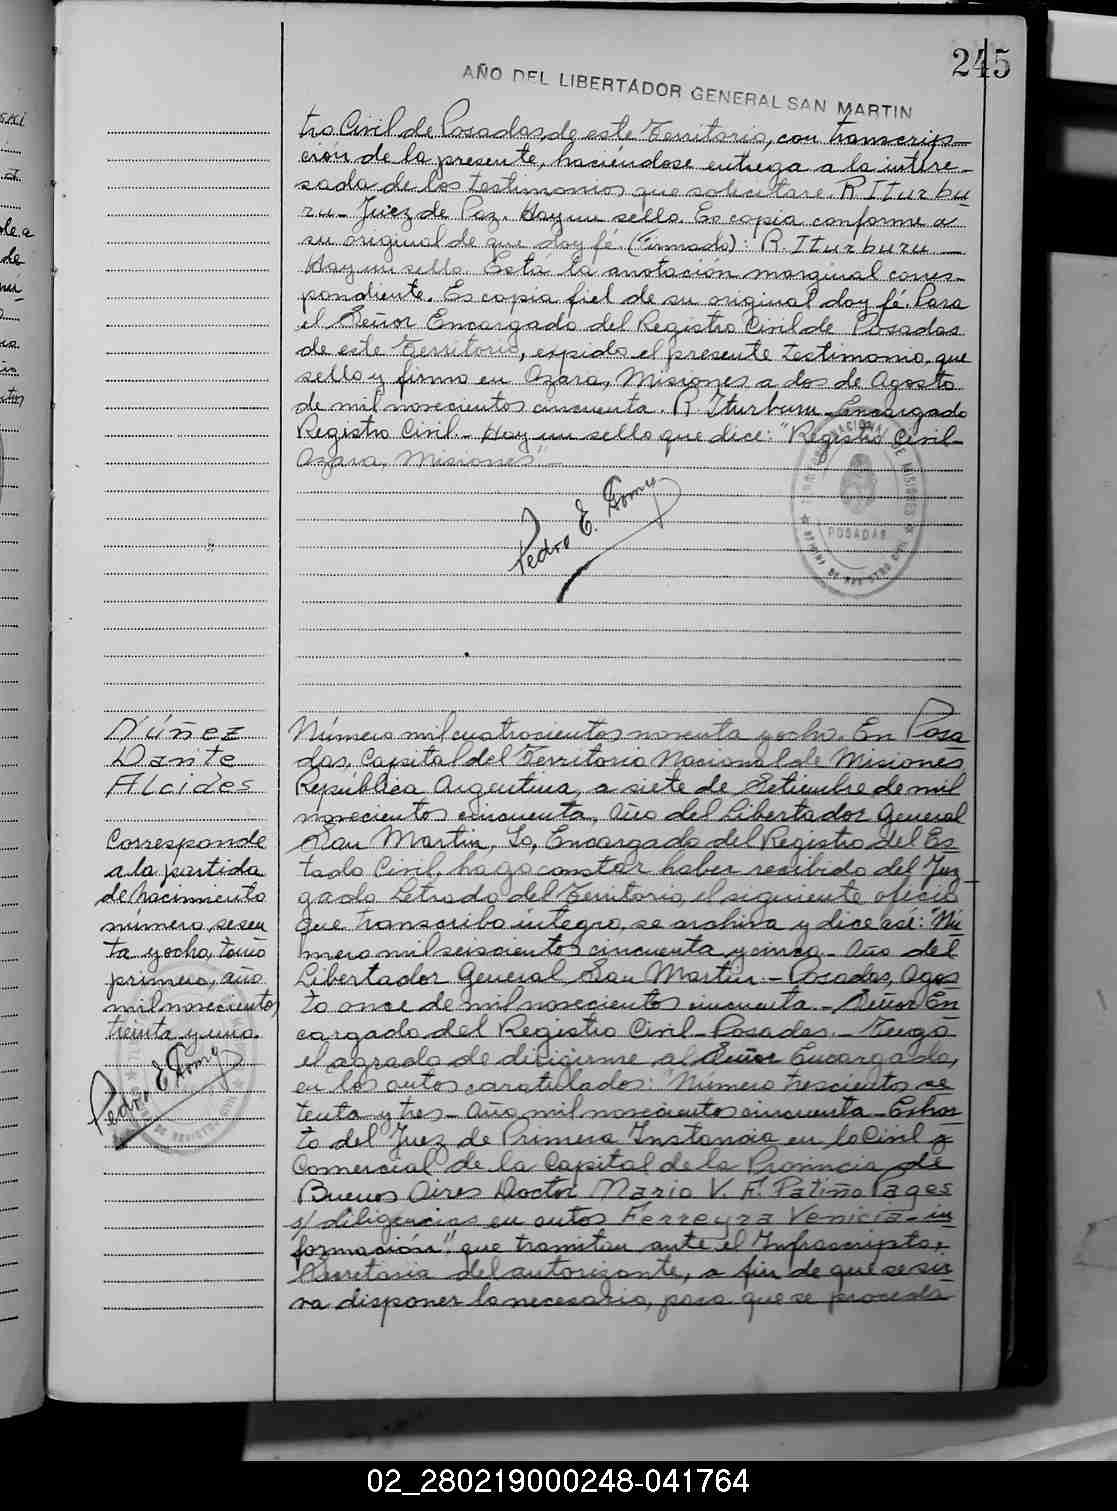 245
AÑO DEL LIBERTADOR GENERAL SAN MARTIN
tro Civil de Posadas, de este Territorio, con transcrip-
ción de la presente, haciéndose entrega a la intere-
sada de los testimonios que solicitare. R. Iturbu
ru - Juez de Paz. Hay un sello. Es copia conforme a
su original de que doy fé. (Firmado): R. Iturburu. -
Hay un sello. Está la anotación marginal corres-
pondiente. Es copia fiel de su original doy fé. Para
el Señor Encargado del Registro Civil de Posadas
de este Territorio, expido el presente testimonio, que
sello y firmo en Azara, Misiones a dos de Agosto
de mil novecientos cincuenta. R. Iturburu - Encargado
Registro Civil. - Hay un sello que dice: "Registro Civil -
Azara, Misiones" -
Pedro E. Gomy
POSADAS
Núñez
Dante
Alcides
Corresponde
a la partida
de nacimiento
número, sesen
ta y ocho, tomo
primero, año
mil novecientos
treinta y uno.
Pedro E Gomy
Número mil cuatrocientos noventa y ocho. En Posa
das, Capital del Territorio Nacional de Misiones
República Argentina, a siete de Setiembre de mil
novecientos cincuenta, Año del Libertador General
San Martin, Yo, Encargado del Registro del Es
tado Civil, hago constar haber recibido del Juz
gado Letrado del Territorio el siguiente oficio
que transcribo íntegro, se archiva y dice así: "Nú
mero mil seiscientos cincuenta y cinco - Año del
Libertador General San Martin. - Posadas, Agos
to once de mil novecientos cincuenta. - Señor En
cargado del Registro Civil - Posadas. - Tengo
el agrado de dirigirme al Señor Encargado,
en los autos caratulados: "Número trescientos se
tenta y tres - Año mil novecientos cincuenta - Exhor
to del Juez de Primera Instancia en lo Civil y
Comercial de la Capital de la Provincia de
Buenos Aires Doctor Mario V. F. Patiño Pages
s/ diligencias en autos Ferreyra Venicia - in
formación", que tramitan ante el Infrascripto,
Secretaria del autorizante, a fin de que se sir
va disponer lo necesario, para que se proceda
02_280219000248-041764